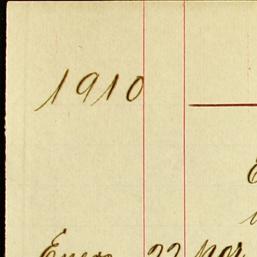 1910
Enero 22 por